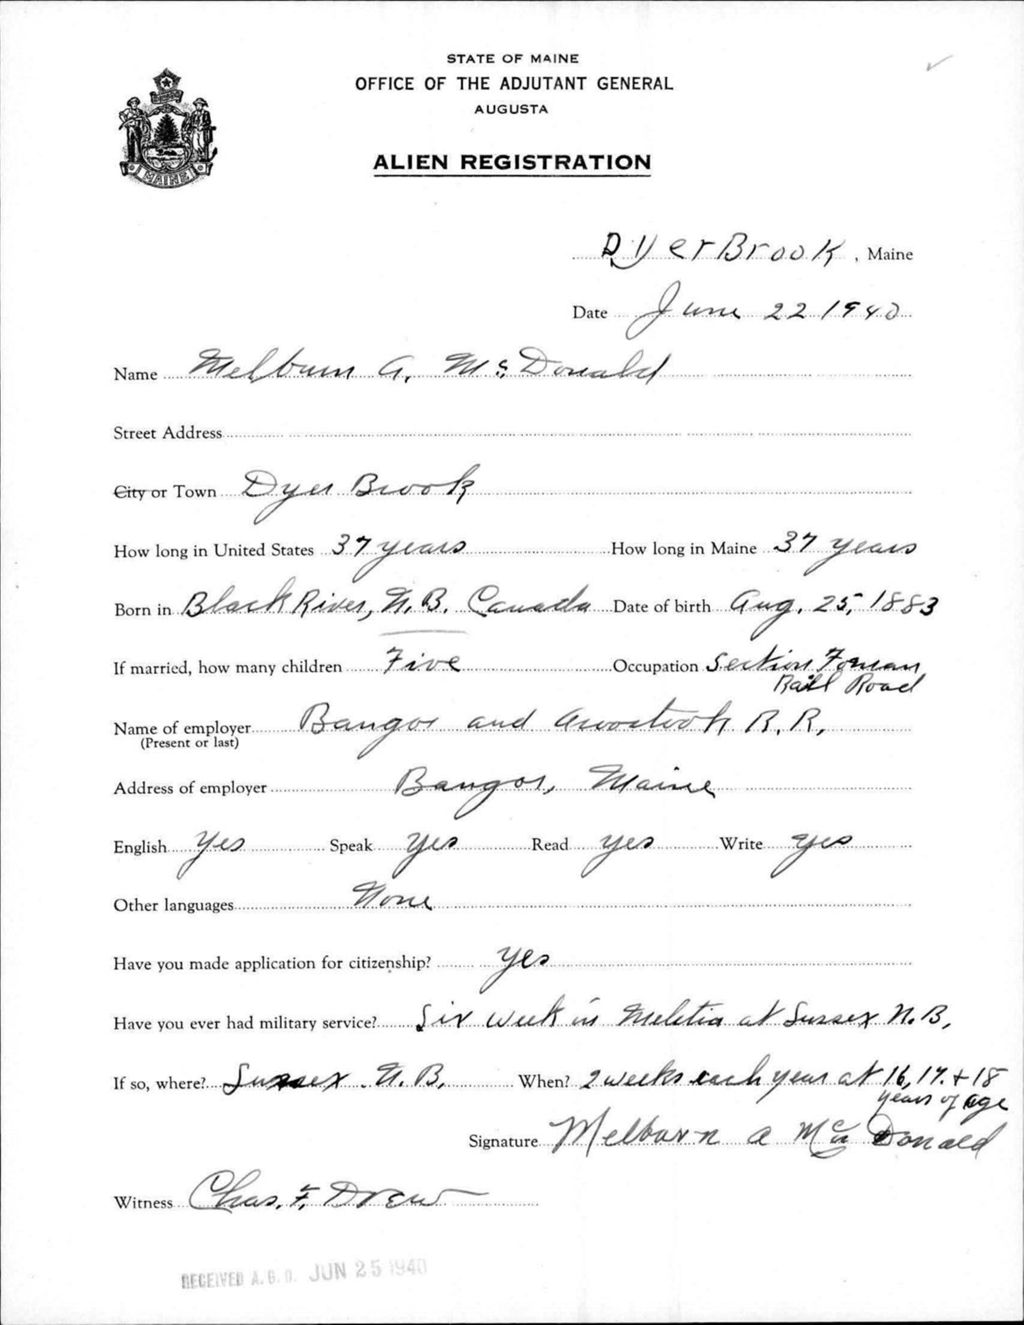 STATE OF MAINE
OFFICE OF THE ADJUTANT GENERAL
AUGUSTA
ALIEN REGISTRATION
MAINE
Dyer Brook, Maine
Date June 22 1940
Name Melburn A. McDonald
Street Address
City or Town Dyer Brook
How long in United States 37 years How long in Maine 37 years
Born in Black River, N.B. Canada Date of birth Aug. 25, 1883
If married, how many children Five Occupation Section Forman
Rail Road
Name of employer Bangor and Aroostook R.R.
(Present or last)
Address of employer Bangor, Maine
English Yes Speak Yes Read Yes Write Yes
Other languages None
Have you made application for citizenship? Yes
Have you ever had military service? Six week in Melitia at Sussex N.B,
If so, where? Sussex N.B. When? 2 weeks each year at 16, 17. + 18
years of age
Signature Melburn A McDonald
Witness Chas. F. Drew
RECEIVED A.G.O. JUN 25 1940